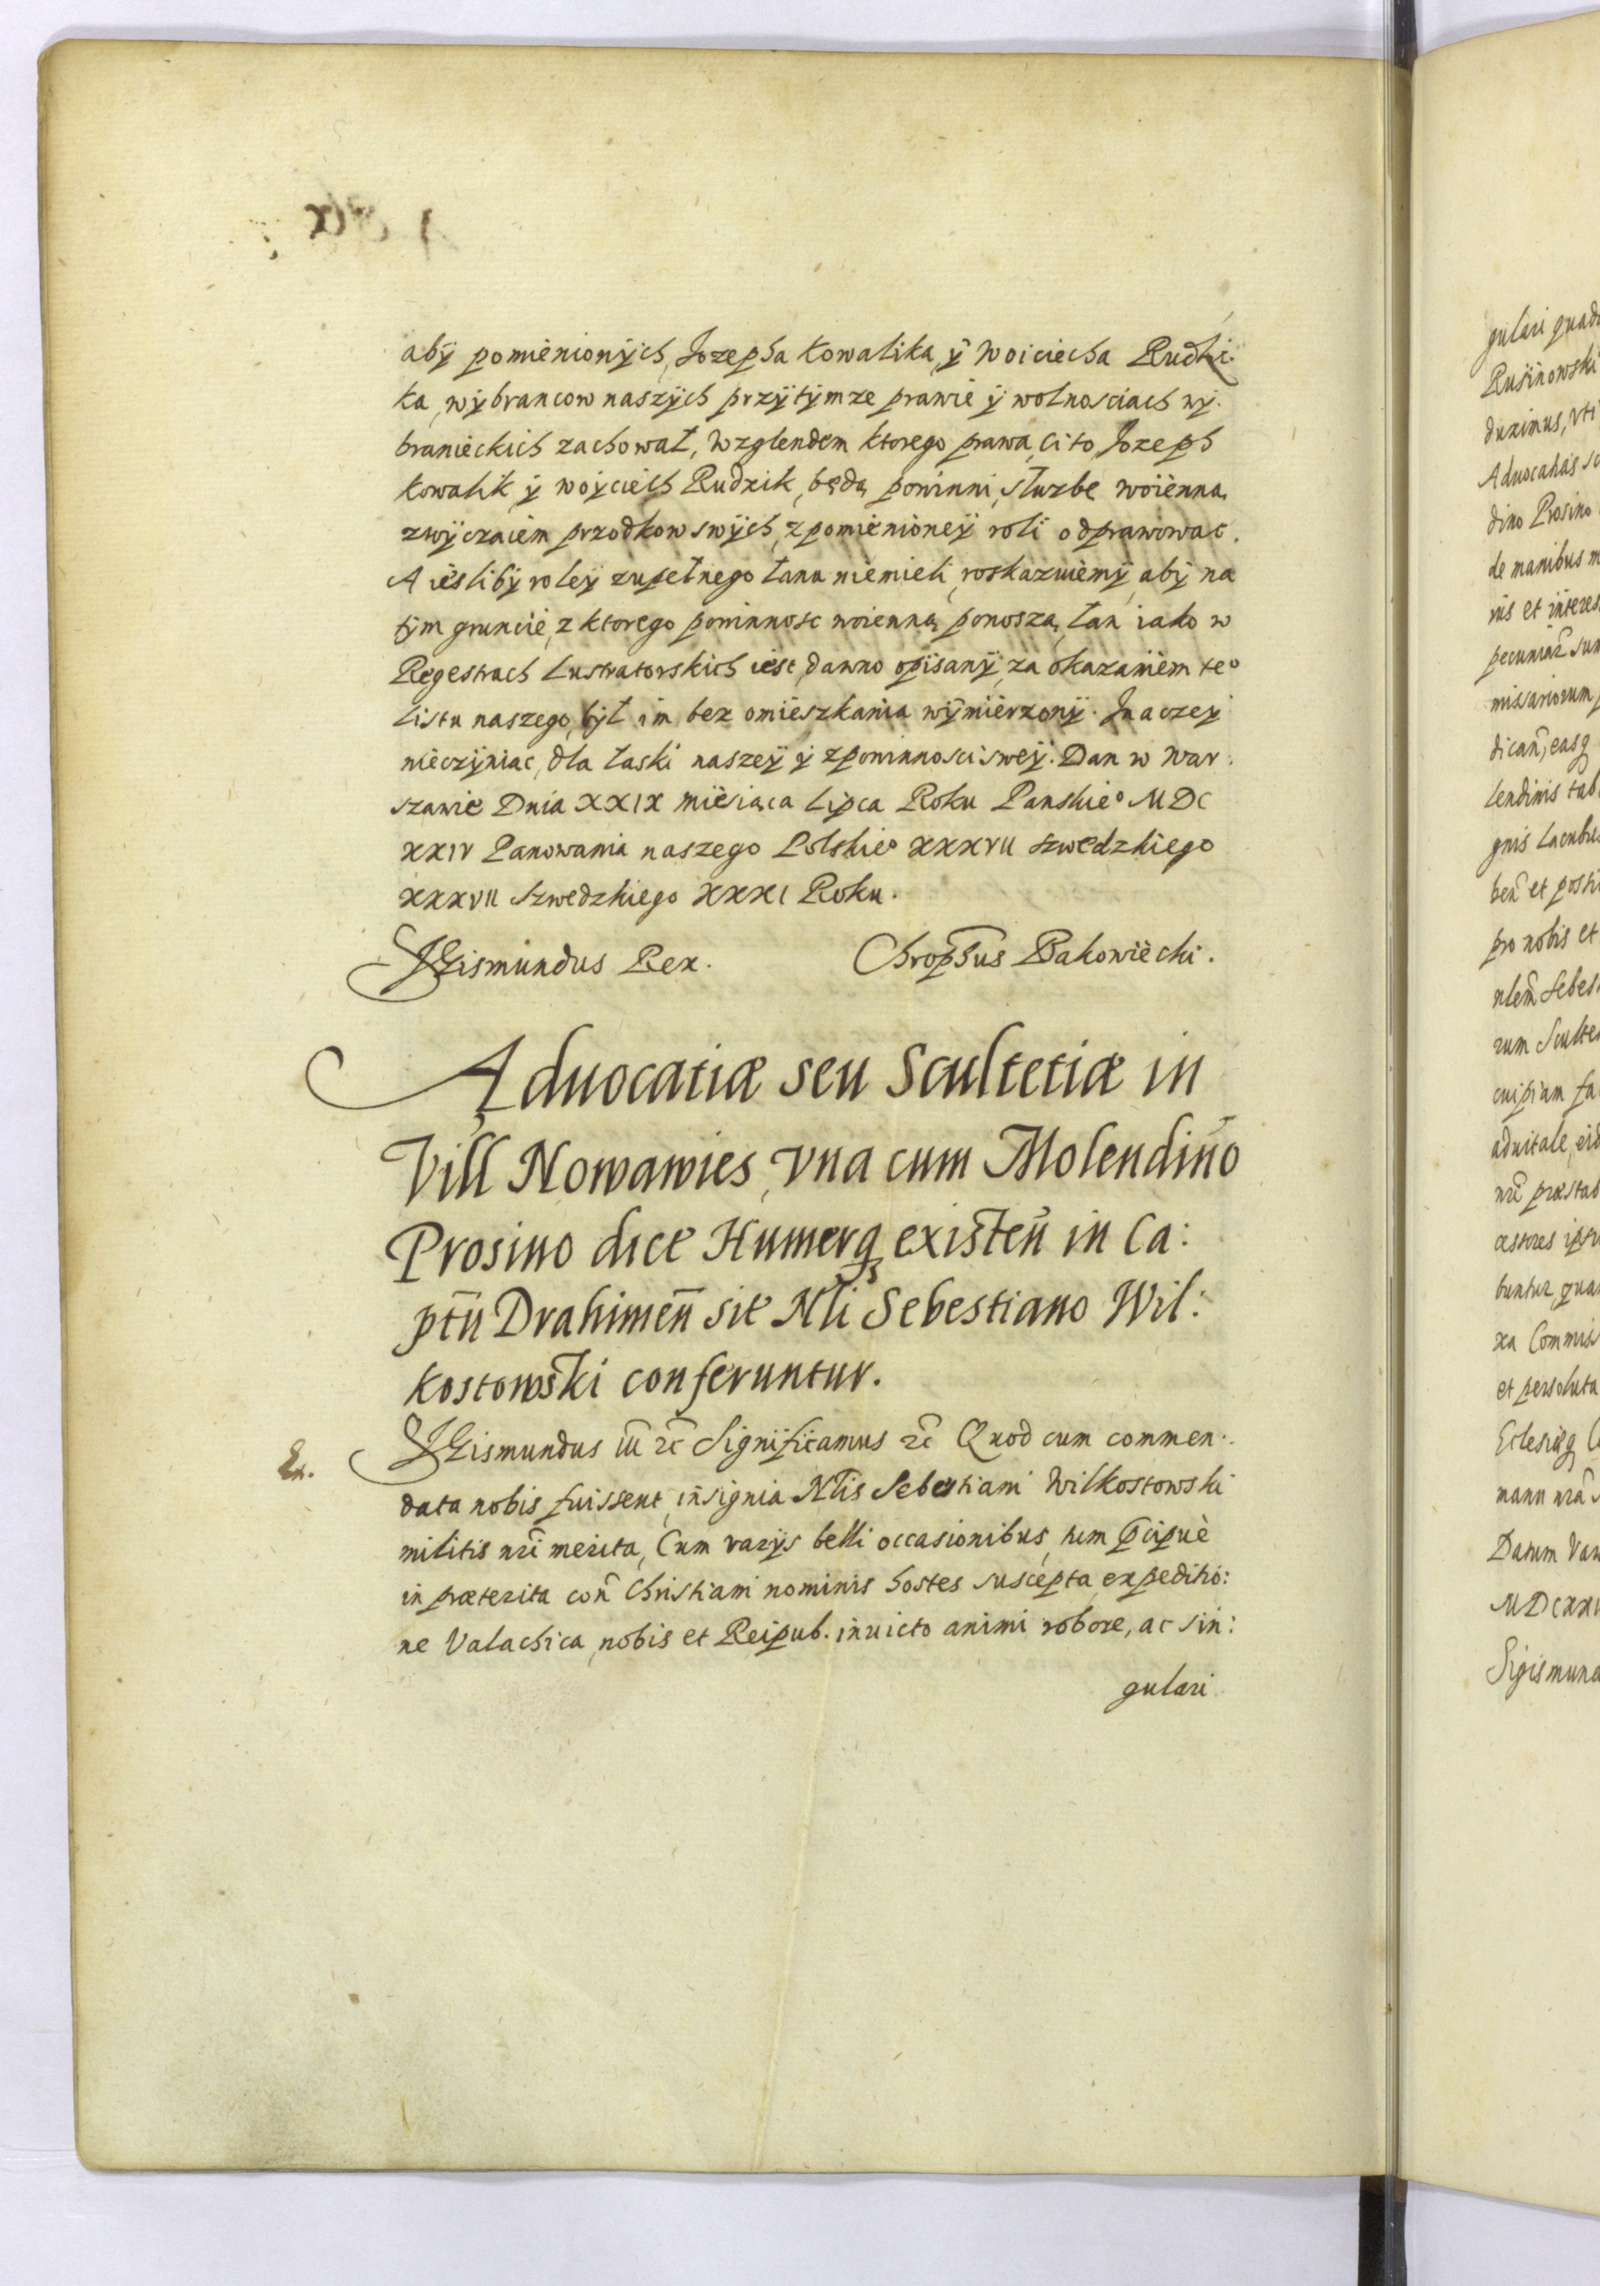 aby pomienionych, Jozepha Kowalika, y Woiciecha Rudzi:
ka, wybrancow naszych przytymze prawie y wolnosciach wy:
branieckich zachował, Wzglendem ktorego prawa, Cito Jozeph
Kowalik, y woyciech Rudzik, będą powinni, służbe woienną
zwyczaiem przodkow swych, z pomienioney roli odprawowac.
A iesliby roley zupełnego łanu niemieli, roskazuiemy, aby na
tym gruncie, z ktorego powinnosc woienną ponoszą, łan iako w
Regestrach Lustratorskich iest, dawno opisany, za okazaniem teo
Listu naszego, był im bez omieszkania wymierzony. Jnaczey
nieczyniac, dla łaski naszey y zpowinnosci swey. Dan w War:
szawie Dnia XXIX miesiąca Lipca Roku Panskieo MDC
XXIV Panowania naszego Polskieo XXXVII szwedzkiego
XXXVII Szwedzkiego XXXI Roku.
SGismundus Rex. Chrophũs Bakowiecki.
Aduocatiæ seu Scultetiæ in
Vill Nowawies, vna cum Molendino
Prosino dice Humerq existeñ in Ca:
ptũ Drahimeñ sit Nli Sebestiano Wil:
kostowski conferuntur.
Ex. SGismundus iii rc̃ Significamus rc̃ Quod cum commen:
data nobis fuissent, insignia Nlis Sebestiani Wilkostowski
militis nri merita, Cum varijs belli occasionibus, tum pcipuè
in præterita coñ Christiani nominis hostes suscepta, expeditio:
ne Valachica, nobis et Reipub. inuicto animi robore, ac sin:
gulari
gulari quad
Rusinowski
duximus, vti
Aduocatias sc
dino Prosino
de manibus m
ris et interes
pecuniar̃ sum
missariorum p
dicañ, easq
lendinis tab
gnis Lacubus
beñ et posti
pro nobis et
nlem̃ Sebes
rum Sculte
cuipiam fa
aduitale, eid
nri præstab
æstores ipsu
buntur, qua
xa Commiss
et persoluta
Eclesiæq
manu nrã s
Datum Var
MDCXXI
Sigismund